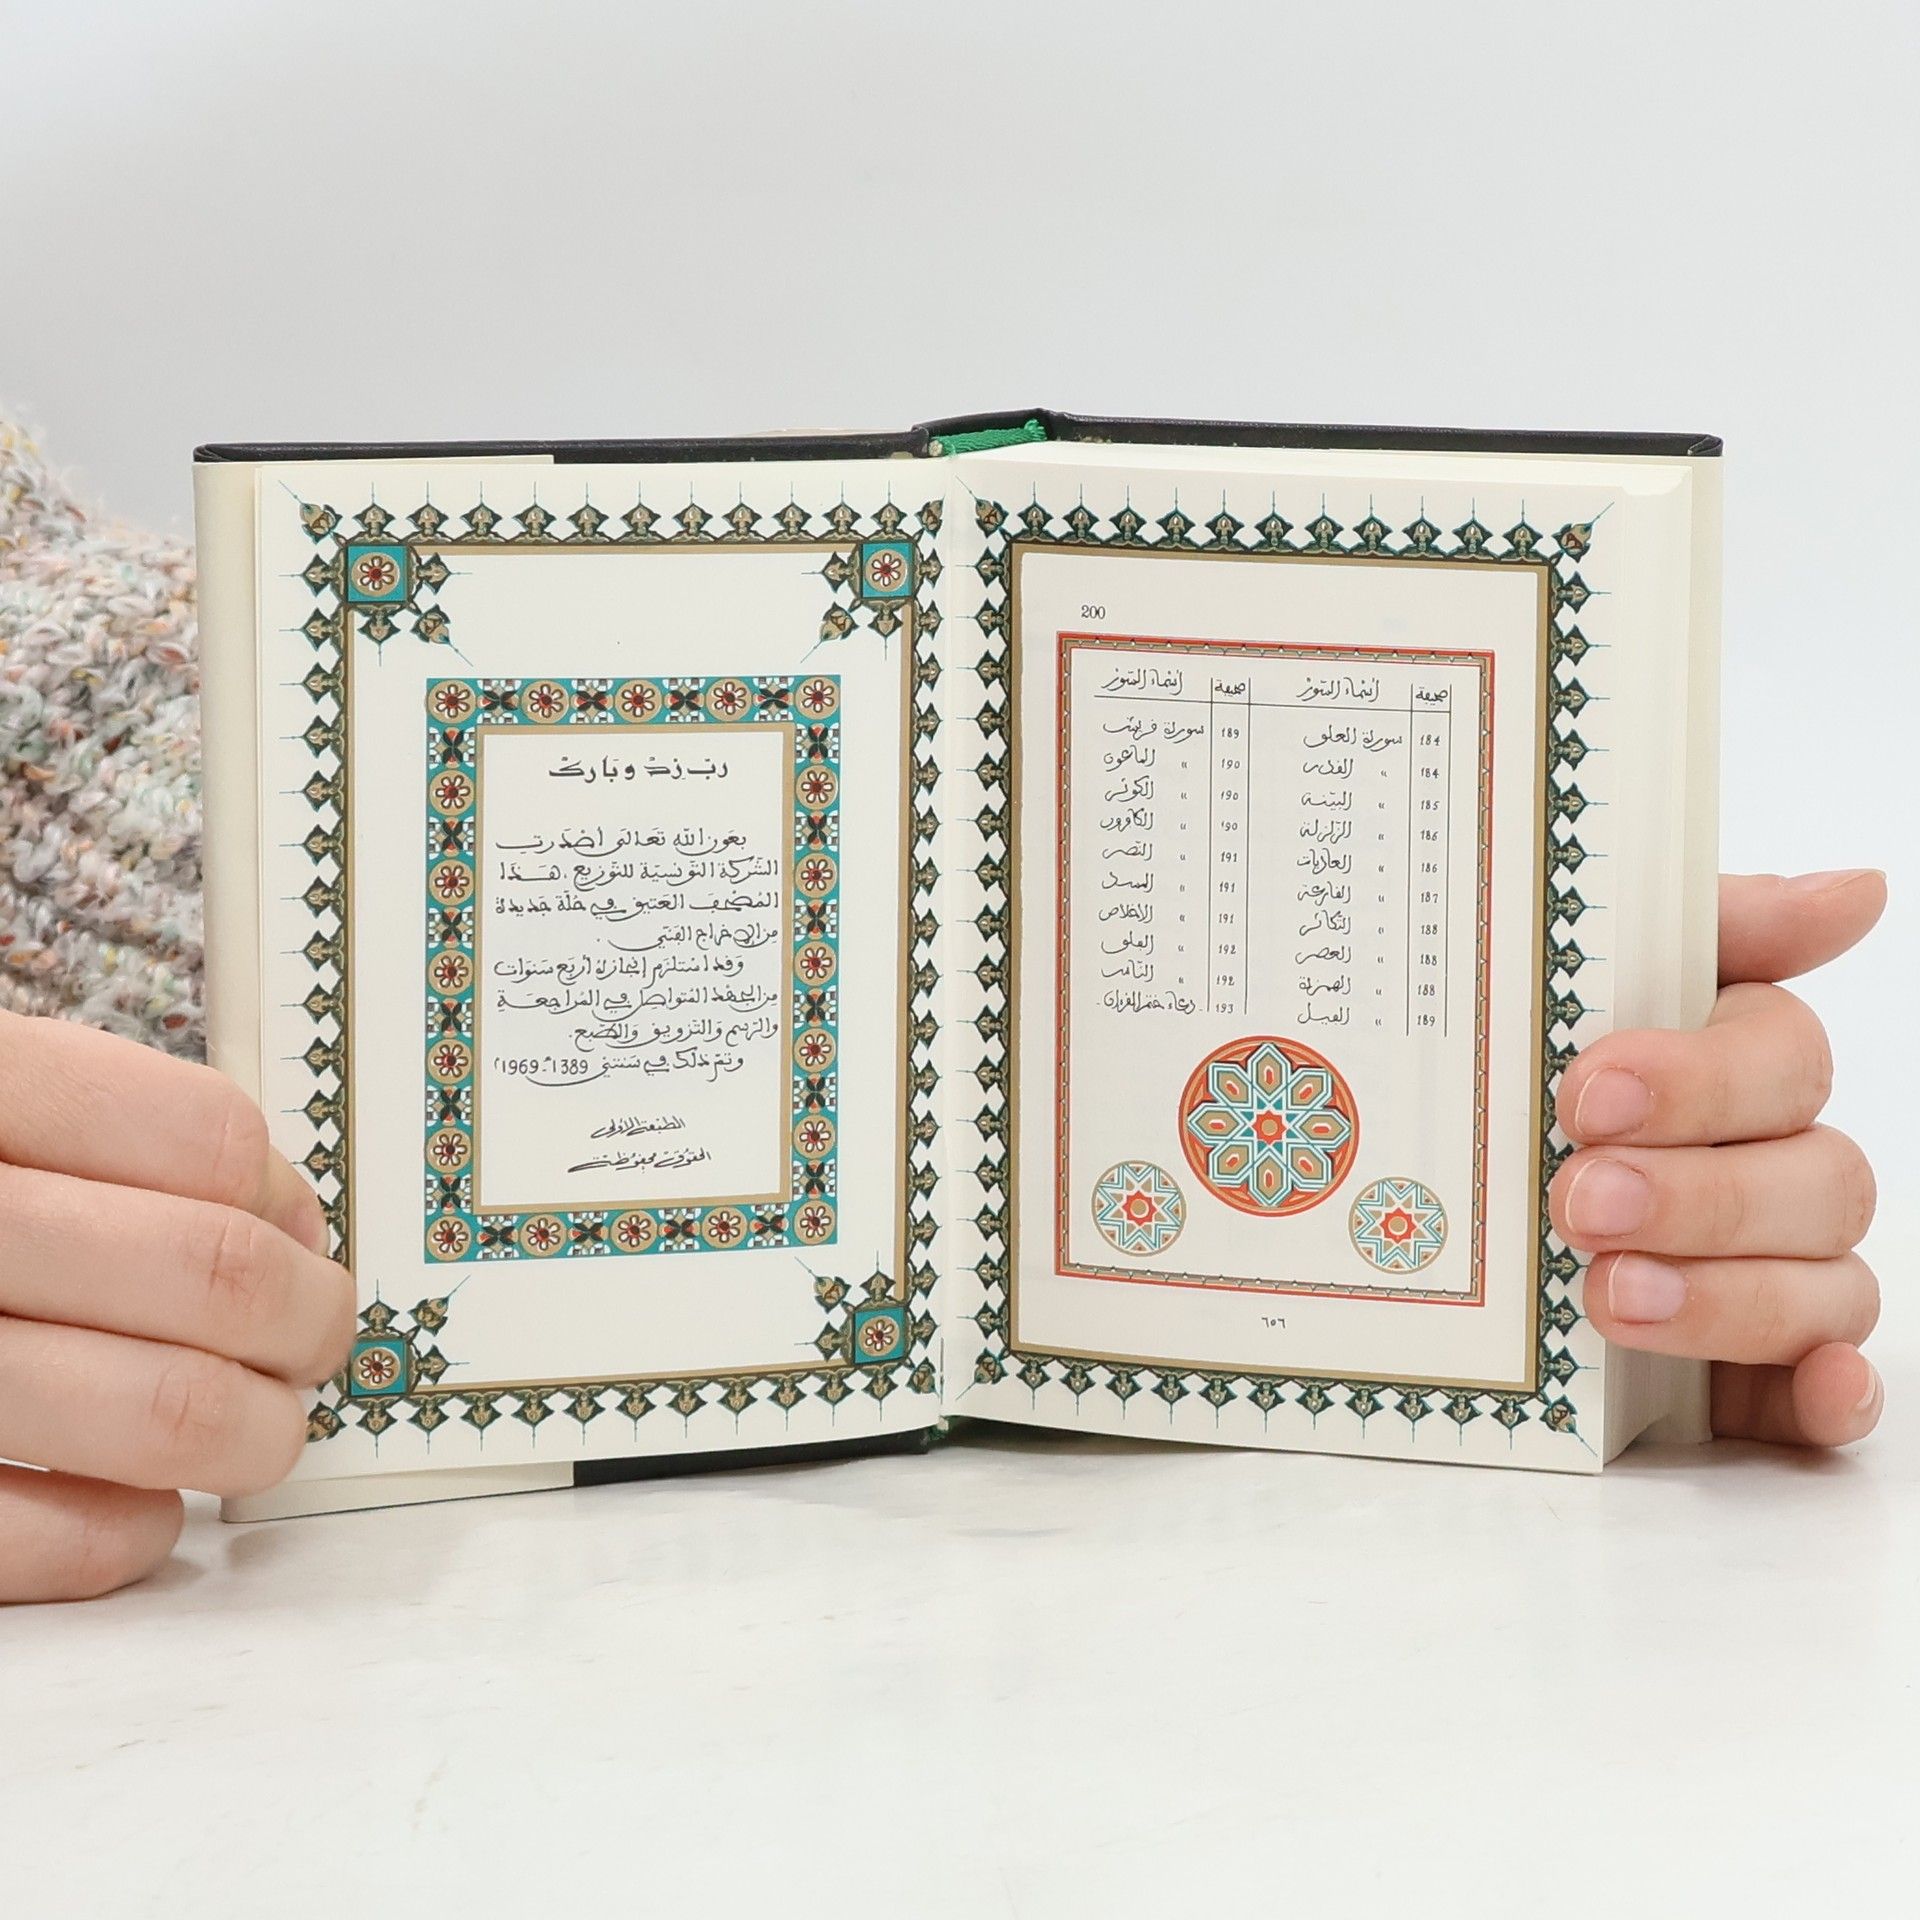 200
صحيفة أسماء السور صحيفة أسماء السور
184 سورة العلق 189 سورة قريش
184 " القدر 190 " الماعون
185 " البيّنة 190 " الكوثر
186 " الزلزلة 190 " الكافرون
186 " العاديات 191 " النصر
187 " القارعة 191 " المسد
188 " التكاثر 191 " الإخلاص
188 " العصر 192 " الفلق
188 " الهمزة 192 " الناس
189 " الفيل 193 - دعاء ختم القرءان -
٦٥٦
ربّ زد وبارك
بعون الله تعالى أصدرت
الشركة التونسية للتوزيع، هذا
المصحف العتيق في حلّة جديدة
من الإخراج الفنّي.
وقد استلزم إنجازه أربع سنوات
من الجهد المتواصل في المراجعة
والرسم والتزويق والطبع.
وتمّ ذلك في سنتي 1389هـ - 1969م
الطبعة الأولى
الحقوق محفوظة